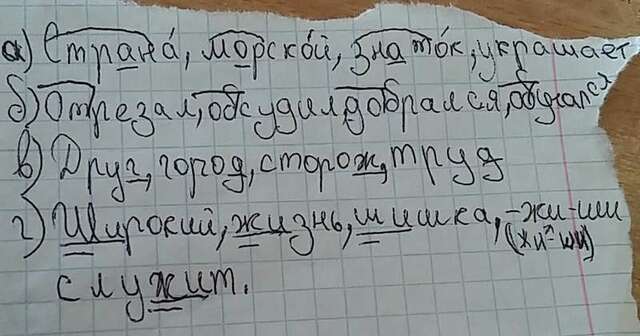 а) Страна́, морско́й, знато́к, украшает
б) Отрезал, обсудил, добрался, обучался
в) Друг, город, сторож, труд
г) Широкий, жизнь, шишка, -жи-ши
(жи-ши)
служит.